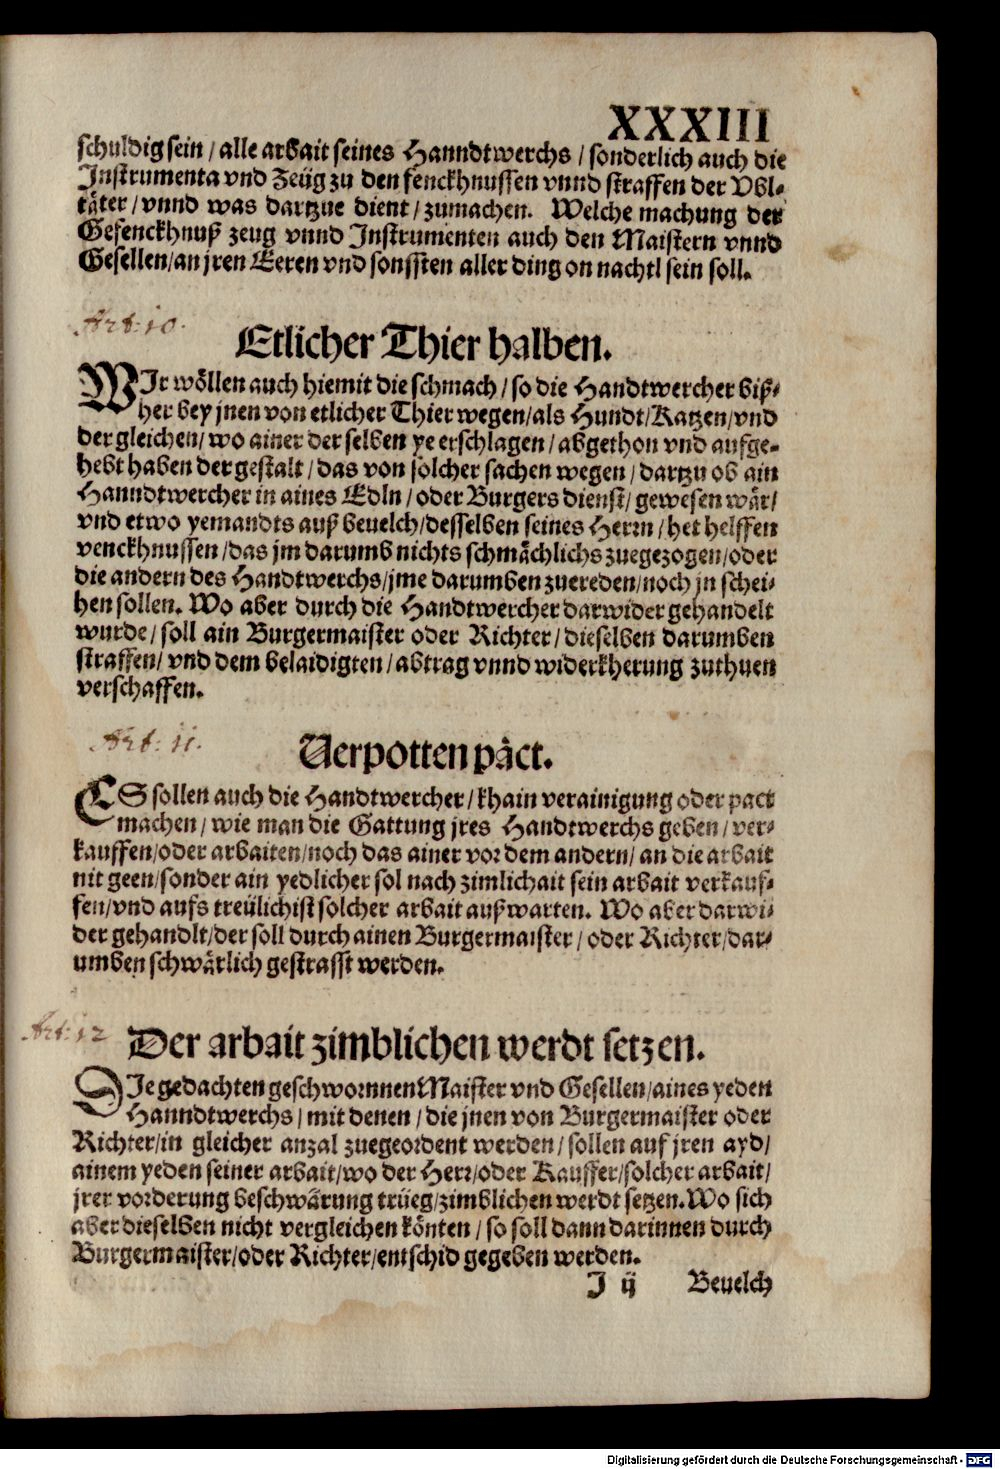 XXXIII
schuldig sein / alle arbait seines Hanndtwerchs / sonderlich auch die
Instrumenta vnd Zeüg zu den fenckhnussen vnnd straffen der Vbl-
täter / vnnd was dartzue dient / zumachen. Welche machung der
Gefenckhnuß zeug vnnd Instrumenten auch den Maistern vnnd
Gesellen / an jren Eeren vnd sonssten aller ding on nachtl sein soll.
Art: 10.
Etlicher Thier halben.
WIr wöllen auch hiemit die schmach / so die Handtwercher biß-
her bey jnen von etlicher Thier wegen / als Hundt / Katzen / vnd
der gleichen / wo ainer der selben ye erschlagen / abgethon vnd aufge-
hebt haben der gestalt / das von solcher sachen wegen / dartzu ob ain
Hanndtwercher in aines Edln / oder Burgers dienst / gewesen wär /
vnd etwo yemandts auß beuelch / desselben seines Herrn / het helffen
venckhnussen / das jm darumb nichts schmächlichs zuegezogen / oder
die andern des Handtwerchs / jme darumben zuereden / noch jn schei-
hen sollen. Wo aber durch die Handtwercher darwider gehandelt
wurde / soll ain Burgermaister oder Richter / dieselben darumben
straffen / vnd dem belaidigten / abtrag vnnd widerkherung zuthuen
verschaffen.
Art: 11.
Verpotten päct.
ES sollen auch die Handtwercher / khain verainigung oder pact
machen / wie man die Gattung jres Handtwerchs geben / ver-
kauffen / oder arbaiten / noch das ainer vor dem andern / an die arbait
nit geen / sonder ain yedlicher sol nach zimlichait sein arbait verkauf-
fen / vnd aufs treülichist solcher arbait außwarten. Wo aber darwi-
der gehandlt / der soll durch ainen Burgermaister / oder Richter / dar-
umben schwärlich gestrafft werden.
Art: 12
Der arbait zimblichen werdt setzen.
DIe gedachten geschwornnen Maister vnd Gesellen / aines yeden
Hanndtwerchs / mit denen / die jnen von Burgermaister oder
Richter / in gleicher anzal zuegeordent werden / sollen auf jren ayd /
ainem yeden seiner arbait / wo der Herr / oder Kauffer / solcher arbait /
jrer vorderung beschwärung trüeg / zimblichen werdt setzen. Wo sich
aber dieselben nicht vergleichen könten / so soll dann darinnen durch
Burgermaister / oder Richter / entschid gegeben werden.
J ij Beuelch
Digitalisierung gefördert durch die Deutsche Forschungsgemeinschaft - DFG